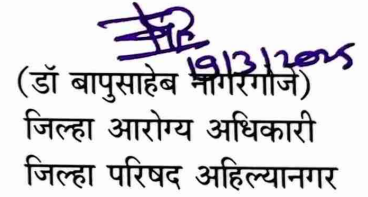 19/3/2025
(डॉ बापुसाहेब नागरगोजे)
जिल्हा आरोग्य अधिकारी
जिल्हा परिषद अहिल्यानगर